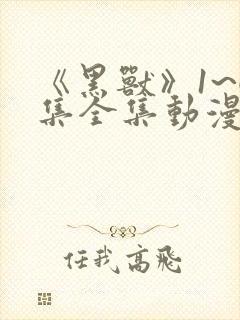 《黑獸》1~
集全集動漫
任我高飛